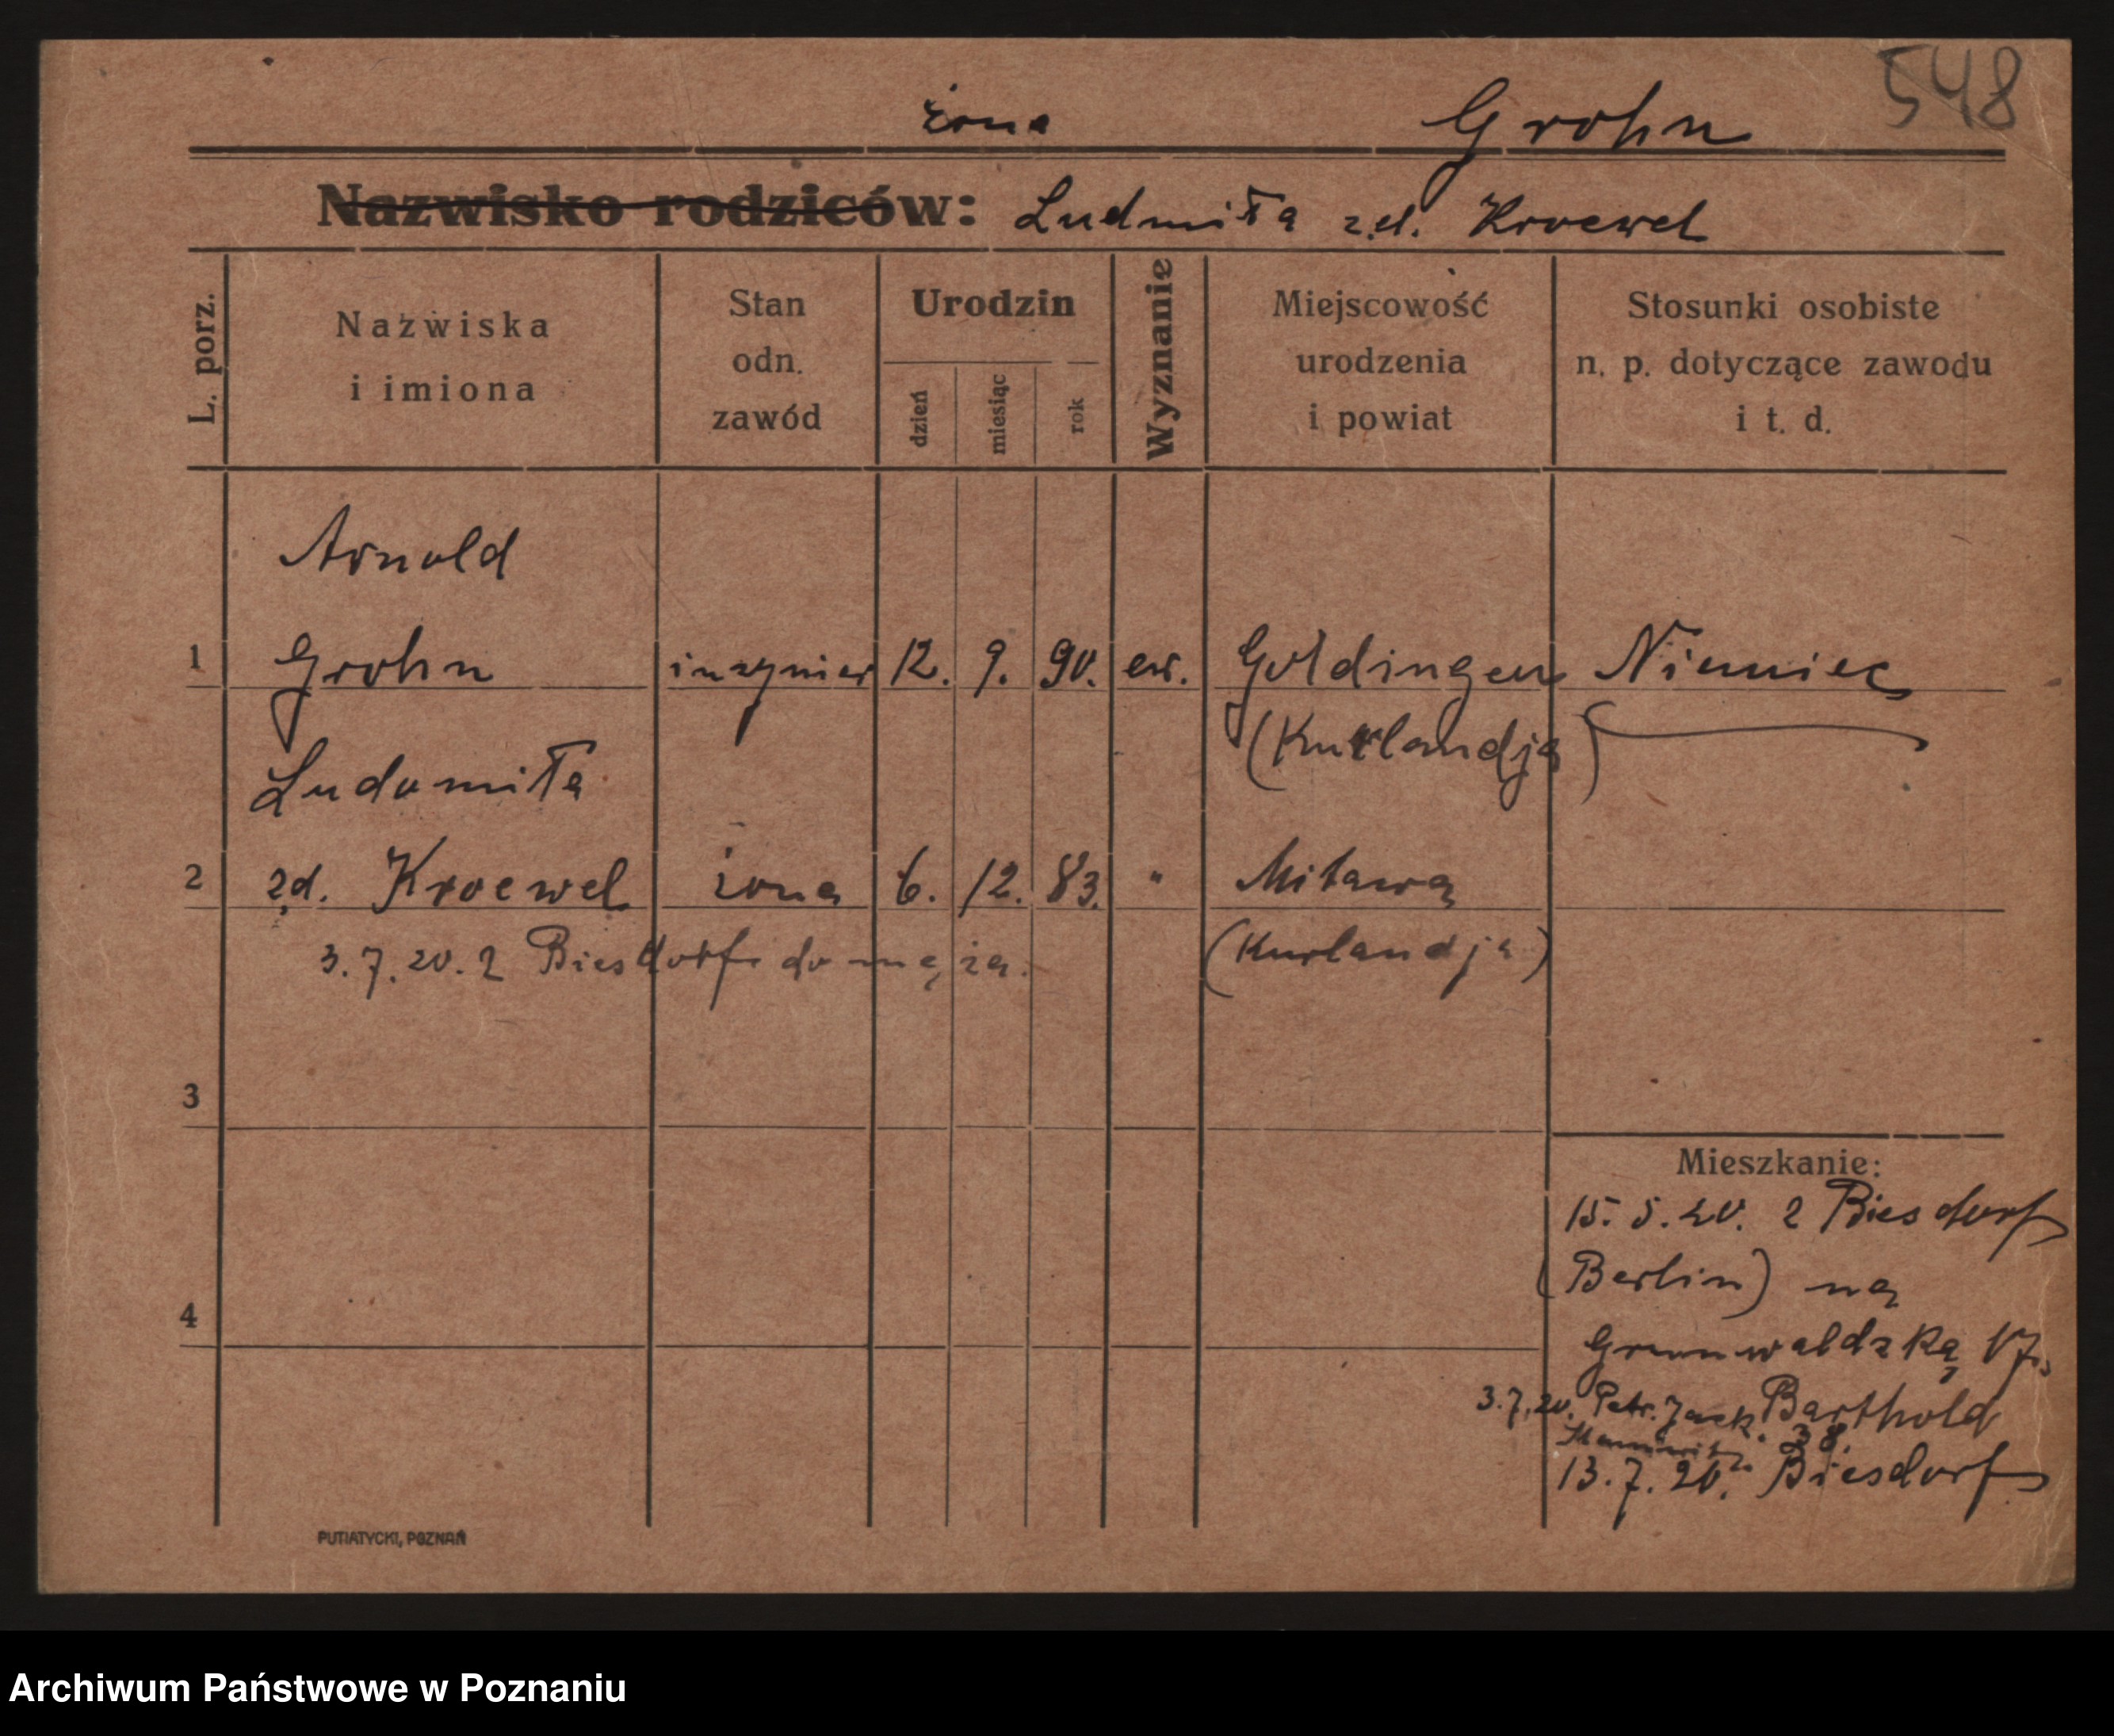 548
żona Grohn
Nazwisko rodziców: Ludmiła zd. Kroewel
L. porz.
Nazwiska
i imiona
Stan
odn.
zawód
Urodzin
dzień
miesiąc
rok
Wyznanie
Miejscowość
urodzenia
i powiat
Stosunki osobiste
n. p. dotyczące zawodu
i t. d.
Arnold
1 Grohn inżynier 12. 9. 90. ew. Goldingen Niemiec
(Kurlandja)
Ludomiła
2 zd. Kroewel żona 6. 12. 83. " Mitawa
3.7.20. z Biesdorf do męża. (Kurlandja)
3
Mieszkanie:
15.5.20. z Biesdorf
(Berlin) na
4
Grunwaldzka 17.
3.7.20. Petr. Jack. Barthold
38.
13.7.20. Biesdorf
PUTIATYCKI, POZNAŃ
Archiwum Państwowe w Poznaniu